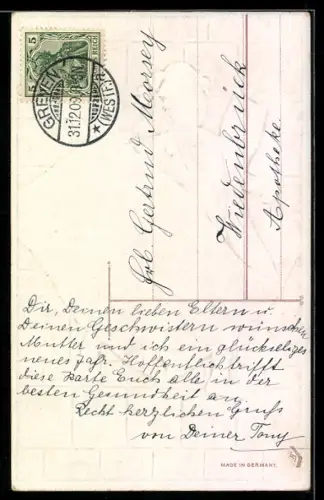 5
REICH
GREVEN
31.12.09
(WESTF.)
Frl. Gertrud Morsey
Wiedenbrück
Apotheke
Dir, Deinen lieben Eltern u.
Deinen Geschwistern wünschen
Mutter und ich ein glückseliges
neues Jahr. Hoffentlich trifft
diese Karte Euch alle in der
besten Gesundheit an.
Recht herzlichen Gruß
von Deiner Tony
MADE IN GERMANY.